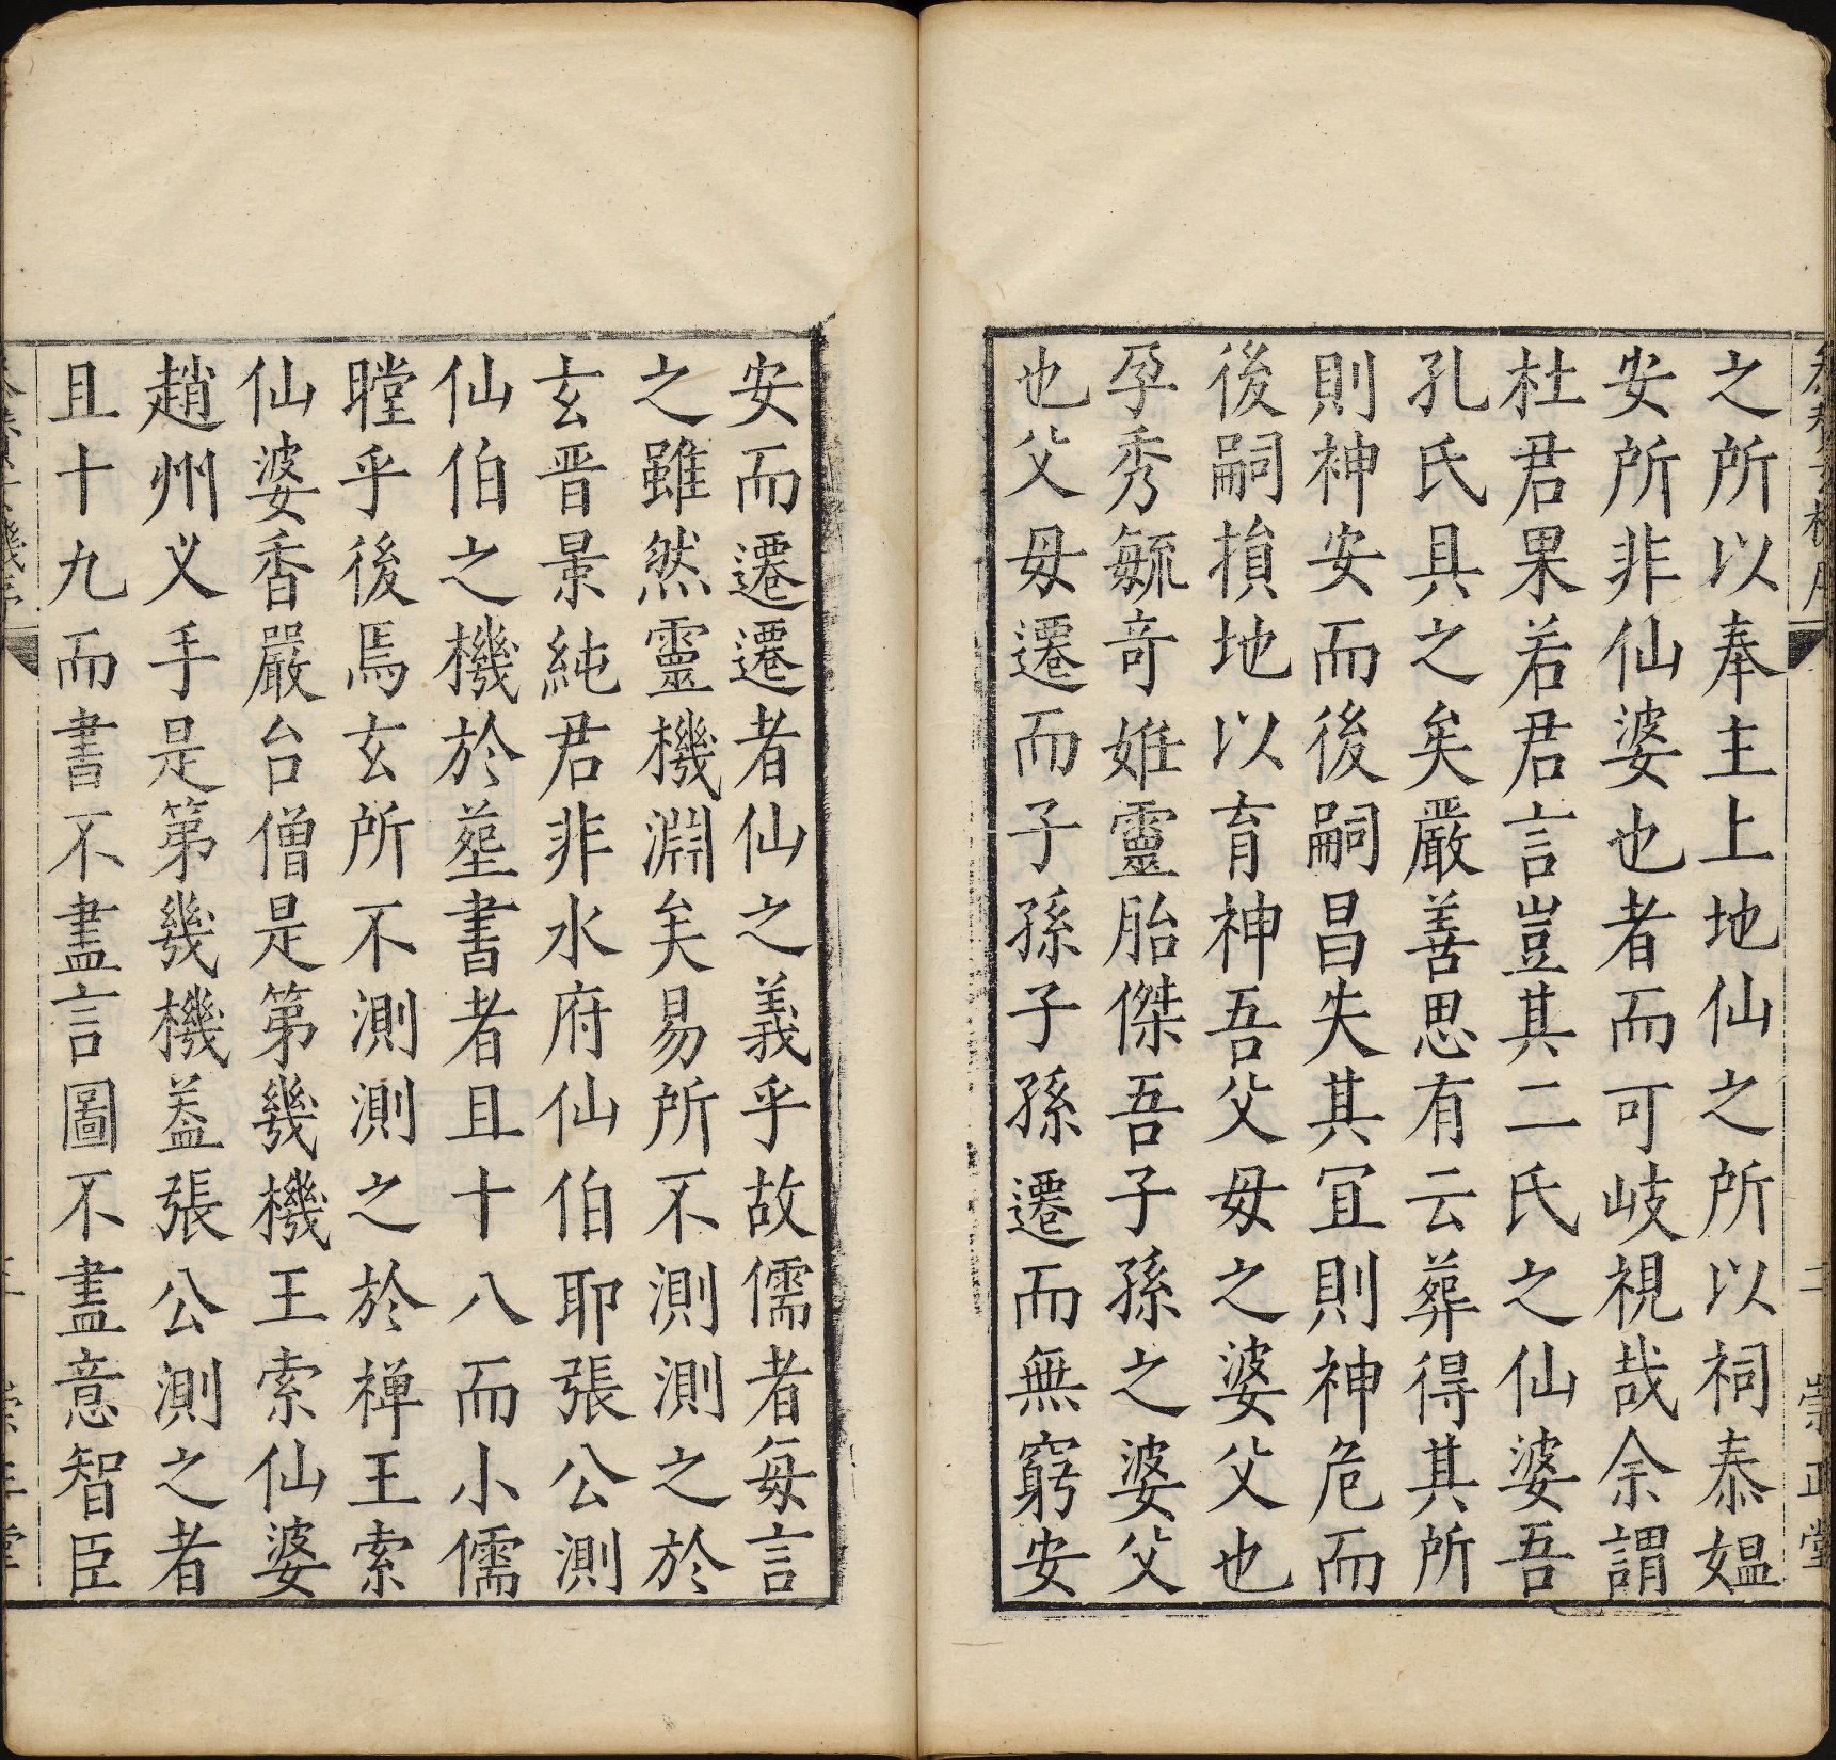 之所以奉主上地仙之所以祠泰媪
安所非仙婆也者而可岐視哉余謂
杜君果若君言豈其二氏之仙婆吾
孔氏具之矣嚴善思有云葬得其所
則神安而後嗣昌失其宜則神危而
後嗣損地以育神吾父母之婆父也
孕秀毓奇姙靈胎傑吾子孫之婆父
也父母遷而子孫子孫遷而無窮安
安而遷遷者仙之義乎故儒者每言
之雖然靈機淵矣易所不測測之於
玄晋景純君非水府仙伯耶張公測
仙伯之機於塟書者且十八而小儒
瞠乎後焉玄所不測測之於禅王索
仙婆香嚴台僧是第幾機王索仙婆
趙州义手是第幾機盖張公測之者
且十九而書不盡言圖不盡意智臣